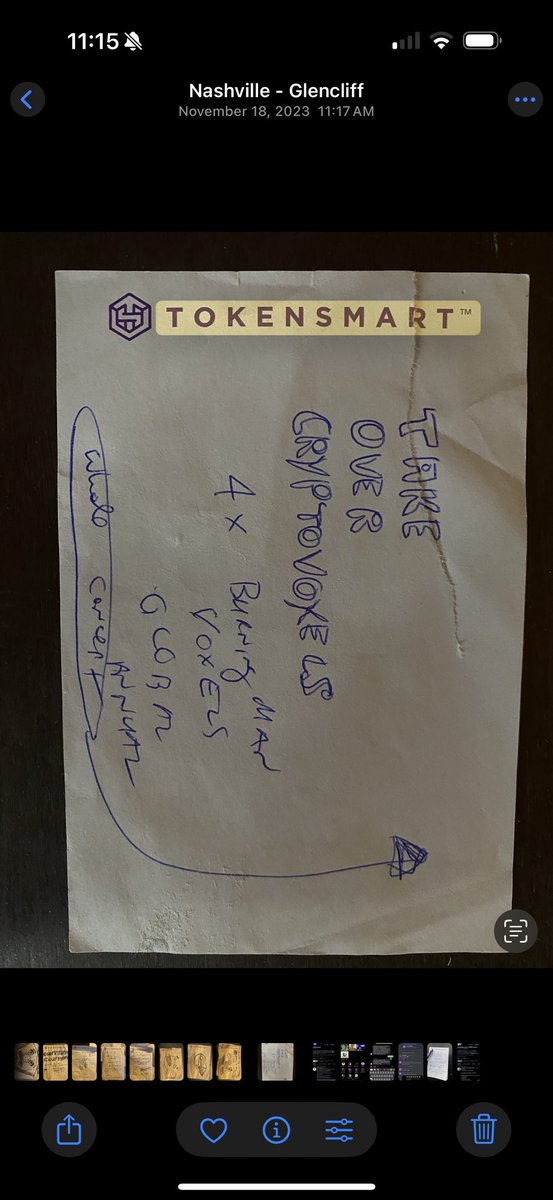 11:15
Nashville - Glencliff
November 18, 2023 11:17 AM
TOKENSMART™
TAKE
OVER
CRYPTOVOXELS
4x BURNING MAN
VOXELS
GLOBAL
ANNUAL
whole concept